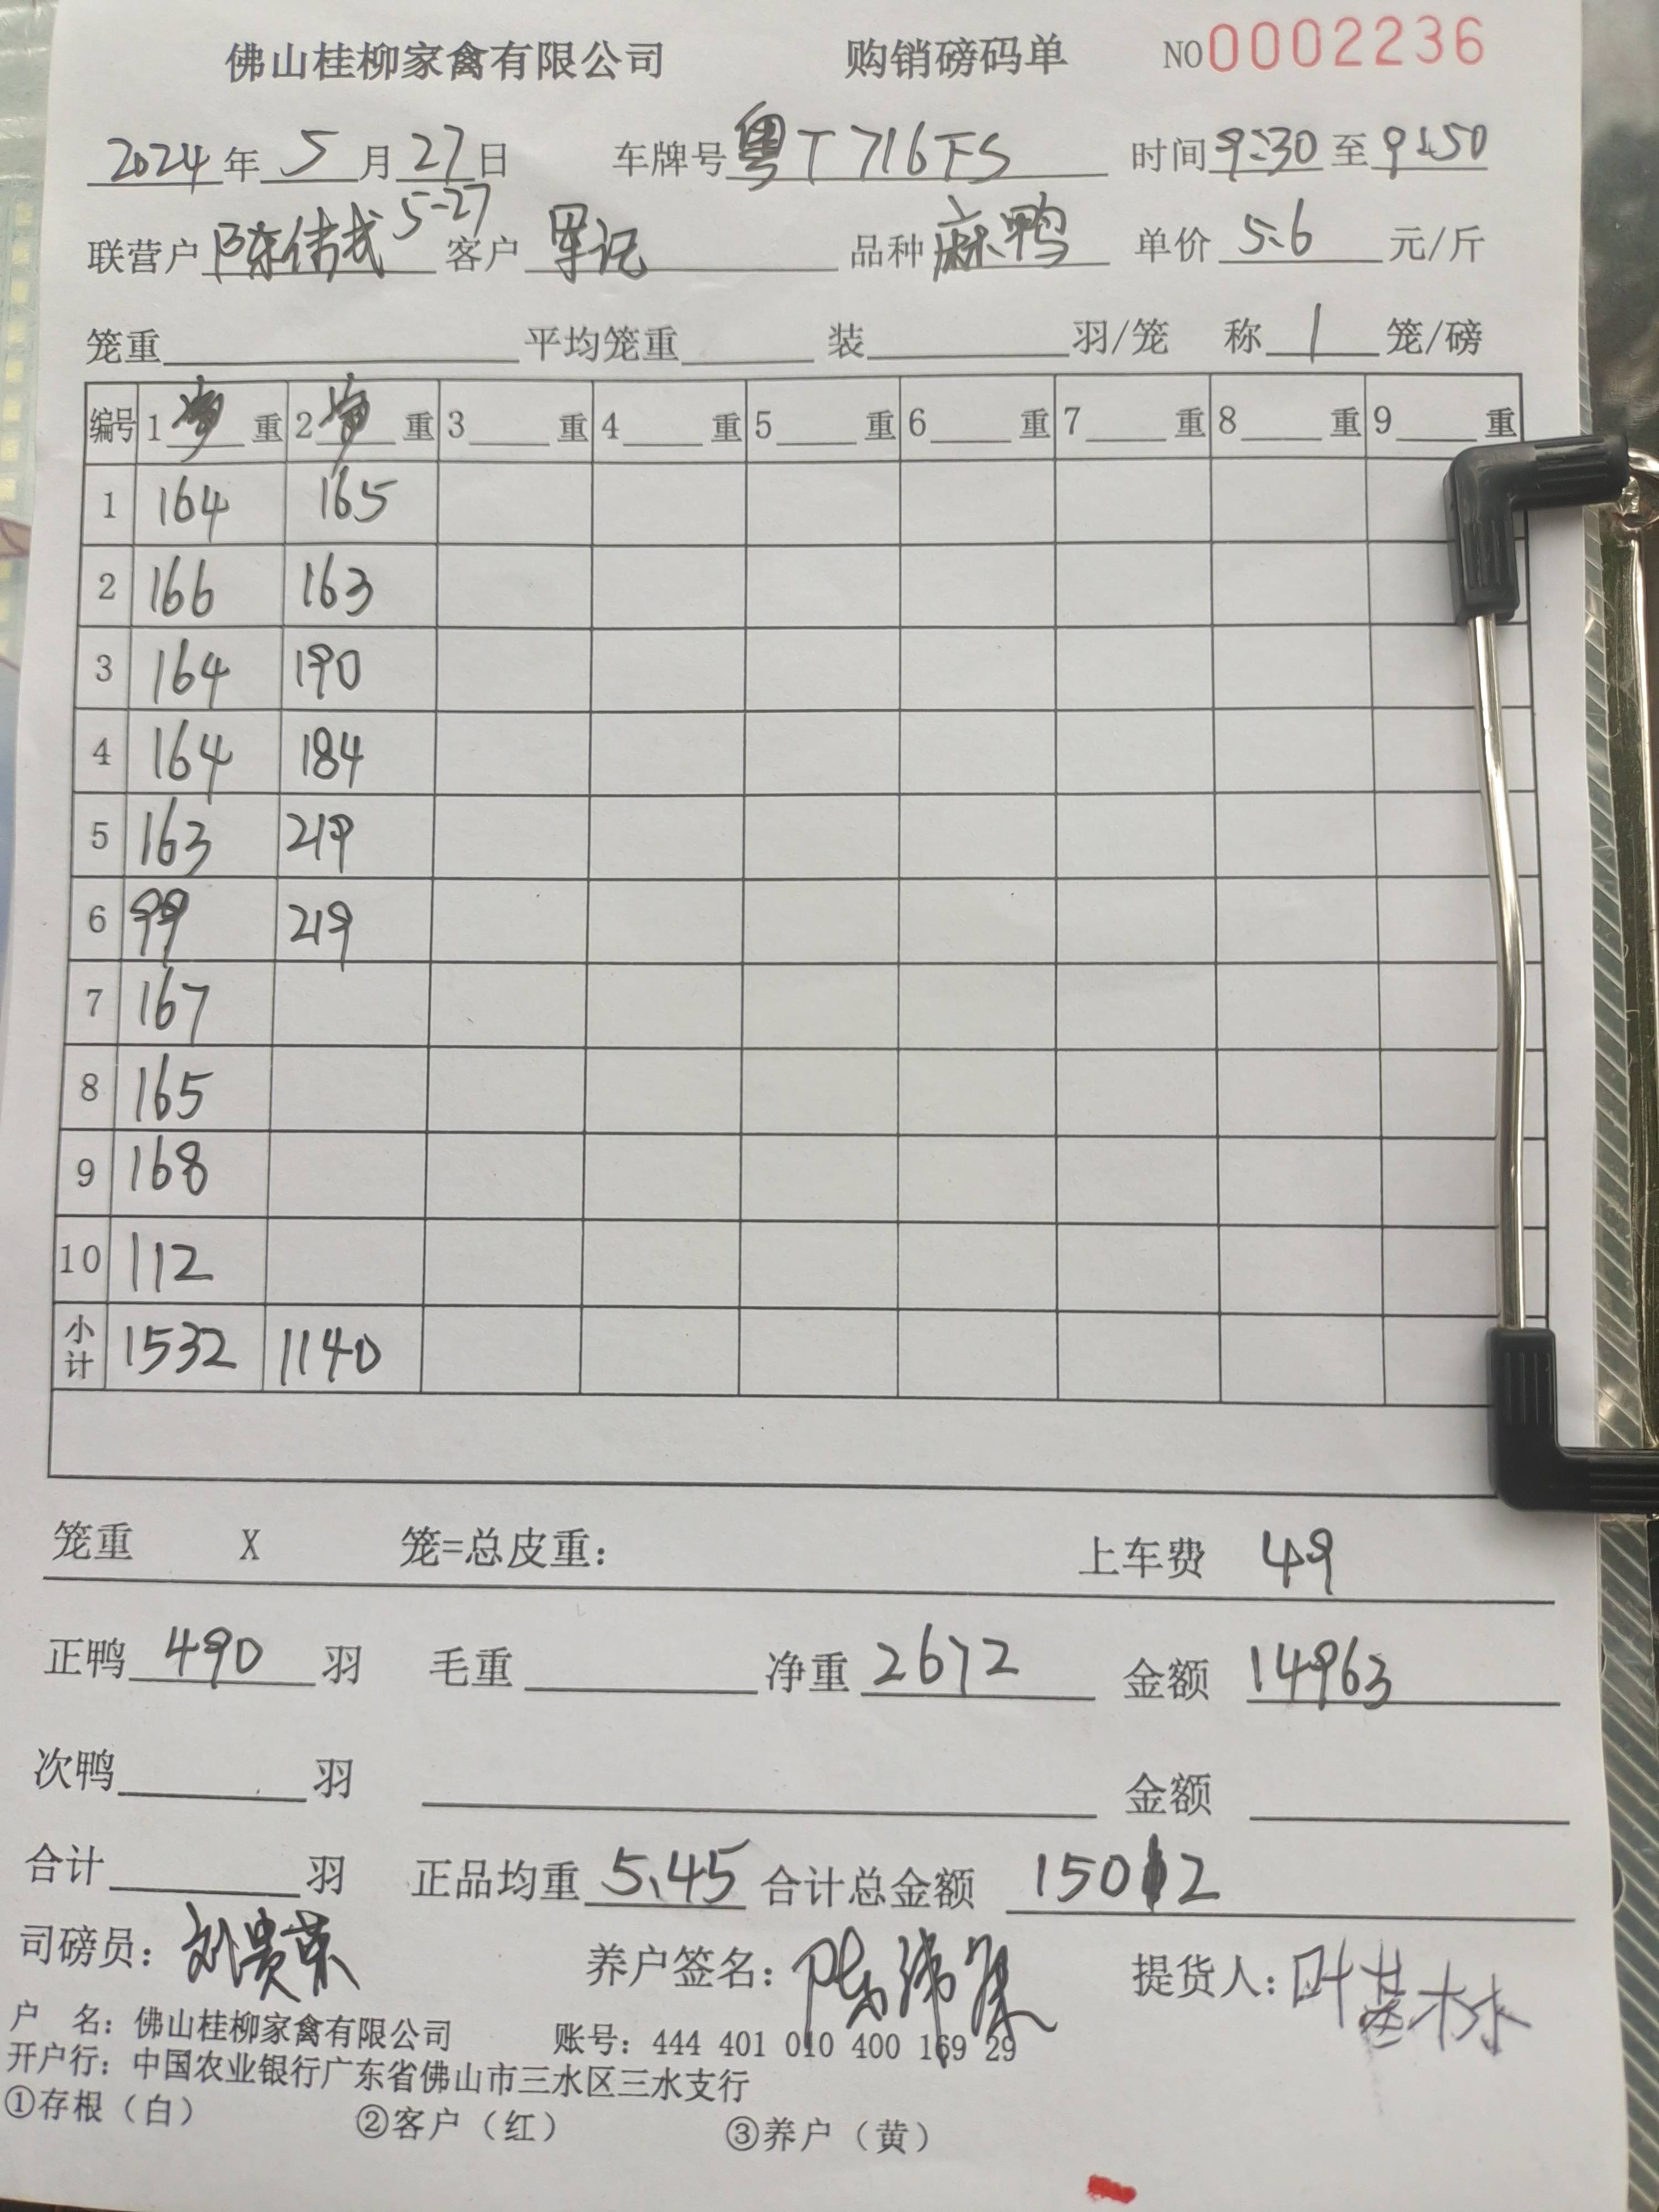 佛山桂柳家禽有限公司 购销磅码单 NO 0002236
2024年5月27日 车牌号 粤T716FS 时间 9:30 至 9:50
5-27
联营户 陈伟成 客户 军记 品种 麻鸭 单价 5.6 元/斤
笼重 平均笼重 装 羽/笼 称 1 笼/磅
编号 1 重 2 重 3 重 4 重 5 重 6 重 7 重 8 重 9 重
1 164 165
2 166 163
3 164 190
4 164 184
5 163 219
6 99 219
7 167
8 165
9 168
10 112
小计 1532 1140
笼重 X 笼=总皮重: 上车费 49
正鸭 490 羽 毛重 净重 2672 金额 14963
次鸭 羽 金额
合计 羽 正品均重 5.45 合计总金额 15012
司磅员: 刘贵荣 养户签名: 陈伟 提货人: 叶基林
户 名: 佛山桂柳家禽有限公司 账号: 444 401 010 400 169 29
开户行: 中国农业银行广东省佛山市三水区三水支行
①存根（白） ②客户（红） ③养户（黄）